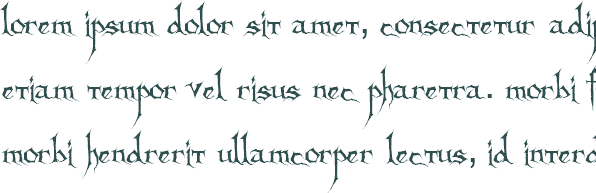 lorem ipsum dolor sit amet, consectetur adip
etiam tempor vel risus nec pharetra. morbi f
morbi hendrerit ullamcorper lectus, id interd